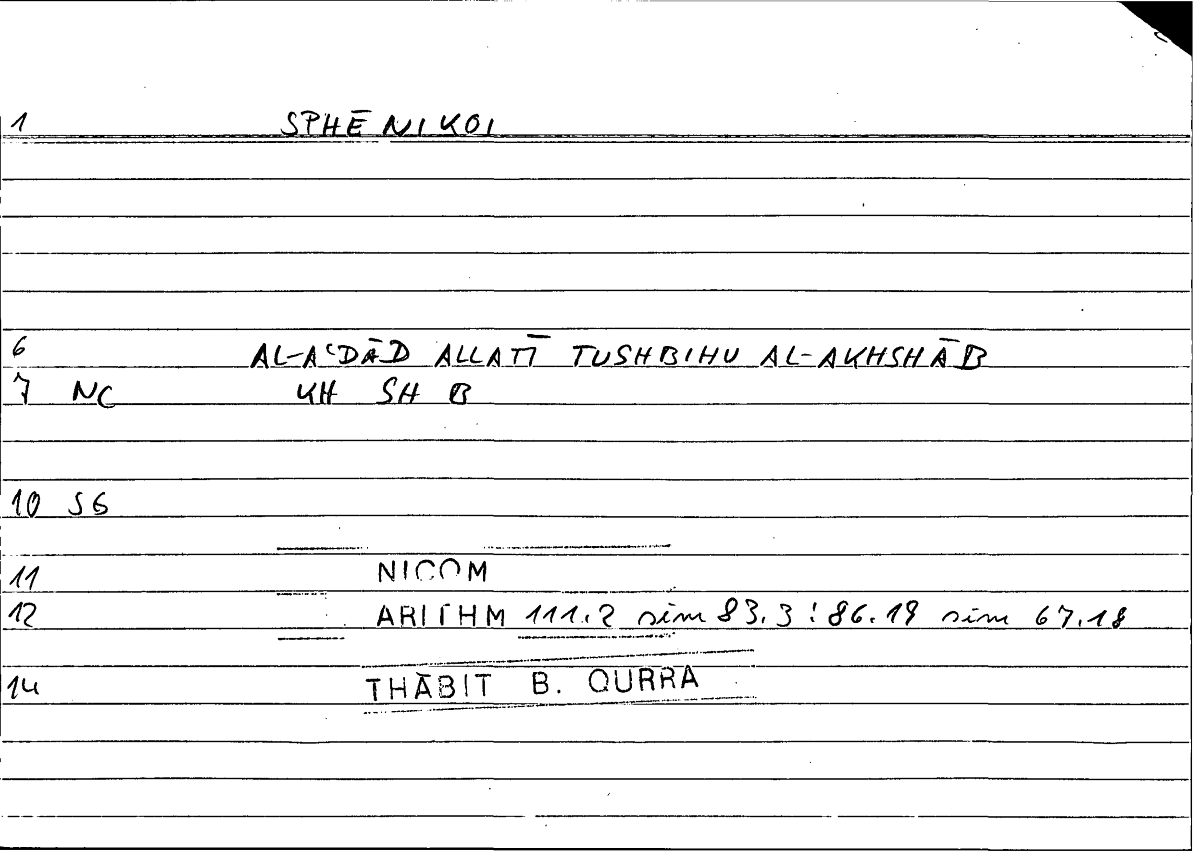 1 SPHĒNIKOI
6 AL-AʿDĀD ALLATĪ TUSHBIHU AL-AKHSHĀB
7 NC KH SH B
10 SG
11 NICOM
12 ARITHM 111.2 sim 83.3 : 86.19 sim 67.18
14 THĀBIT B. QURRA